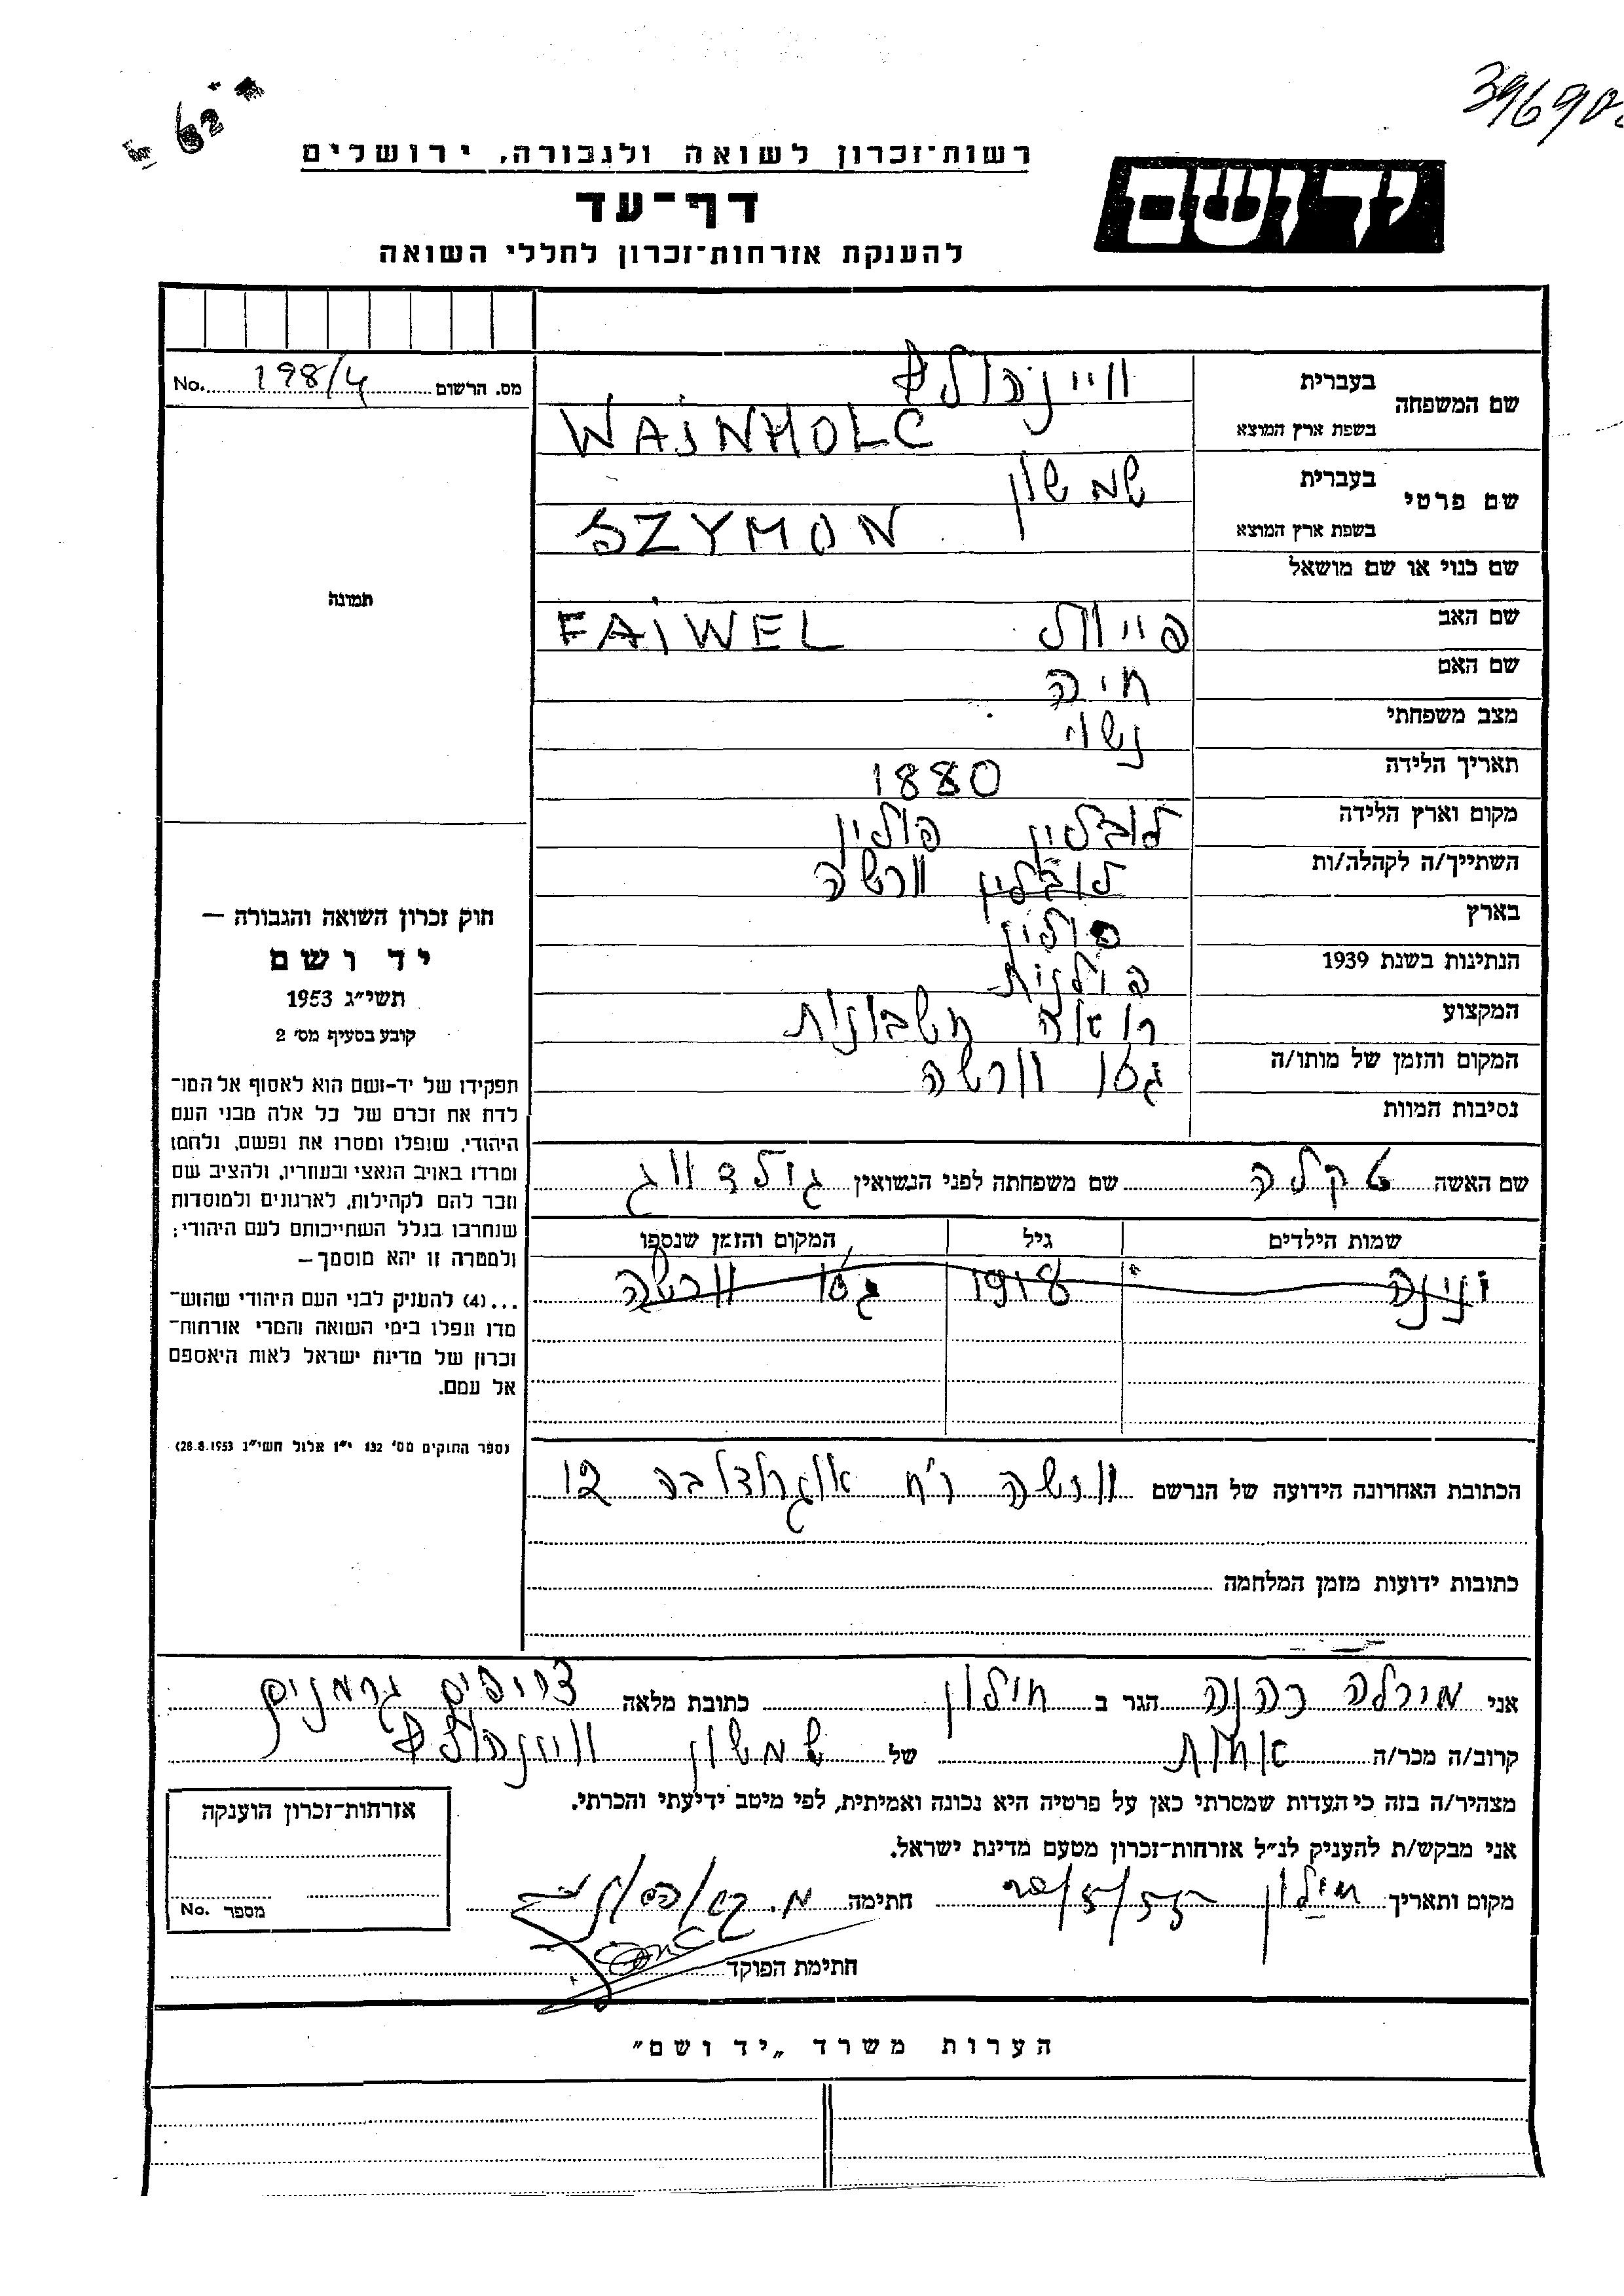 רשות־זכרון לשואה ולגבורה, ירושלים
דף־עד
להענקת אזרחות־זכרון לחללי השואה
יד ושם
מס. הרשום 198/4 No.
שם המשפחה
בעברית
בשפת ארץ המוצא WAJNHOLC
שם פרטי
בעברית שמשון
בשפת ארץ המוצא SZYMON
שם כנוי או שם מושאל
שם האב פייוול FAJWEL
שם האם חיה
מצב משפחתי נשוי
תאריך הלידה 1880
מקום וארץ הלידה לובלין פולין
השתייך/ה לקהלה/ות לובלין וורשה
בארץ פולין
הנתינות בשנת 1939 פולנית
המקצוע רואה חשבונות
המקום והזמן של מותו/ה גטו וורשה
נסיבות המוות
תמונה
חוק זכרון השואה והגבורה —
יד ושם
תשי״ג 1953
קובע בסעיף מס׳ 2
תפקידו של יד-ושם הוא לאסוף אל המו־
לדת את זכרם של כל אלה מבני העם
היהודי, שנפלו ומסרו את נפשם, נלחמו
ומרדו באויב הנאצי ובעוזריו, ולהציב שם
וזכר להם לקהילות, לארגונים ולמוסדות
שנחרבו בגלל השתייכותם לעם היהודי;
ולמטרה זו יהא מוסמך —
...(4) להעניק לבני העם היהודי שהוש־
מדו ונפלו בימי השואה והמרי אזרחות־
זכרון של מדינת ישראל לאות היאספם
אל עמם.
(ספר החוקים מס׳ 132 י״ז אלול תשי״ג 28.8.1953)
שם האשה טקלה שם משפחתה לפני הנשואין גולדווג
שמות הילדים גיל המקום והזמן שנספו
ינינה 1918 גטו וורשה
הכתובת האחרונה הידועה של הנרשם וורשה רח 12
כתובות ידועות מזמן המלחמה
אני מירלה כהנה הגר ב חולון כתובת מלאה צריפים גרמנים
קרוב/ה מכר/ה אחות של שמשון
מצהיר/ה בזה כי העדות שמסרתי כאן על פרטיה היא נכונה ואמיתית, לפי מיטב ידיעתי והכרתי.
אני מבקש/ת להעניק לנ״ל אזרחות־זכרון מטעם מדינת ישראל.
מקום ותאריך חולון חתימה
חתימת הפוקד
אזרחות־זכרון הוענקה
מספר No.
הערות משרד „יד ושם״